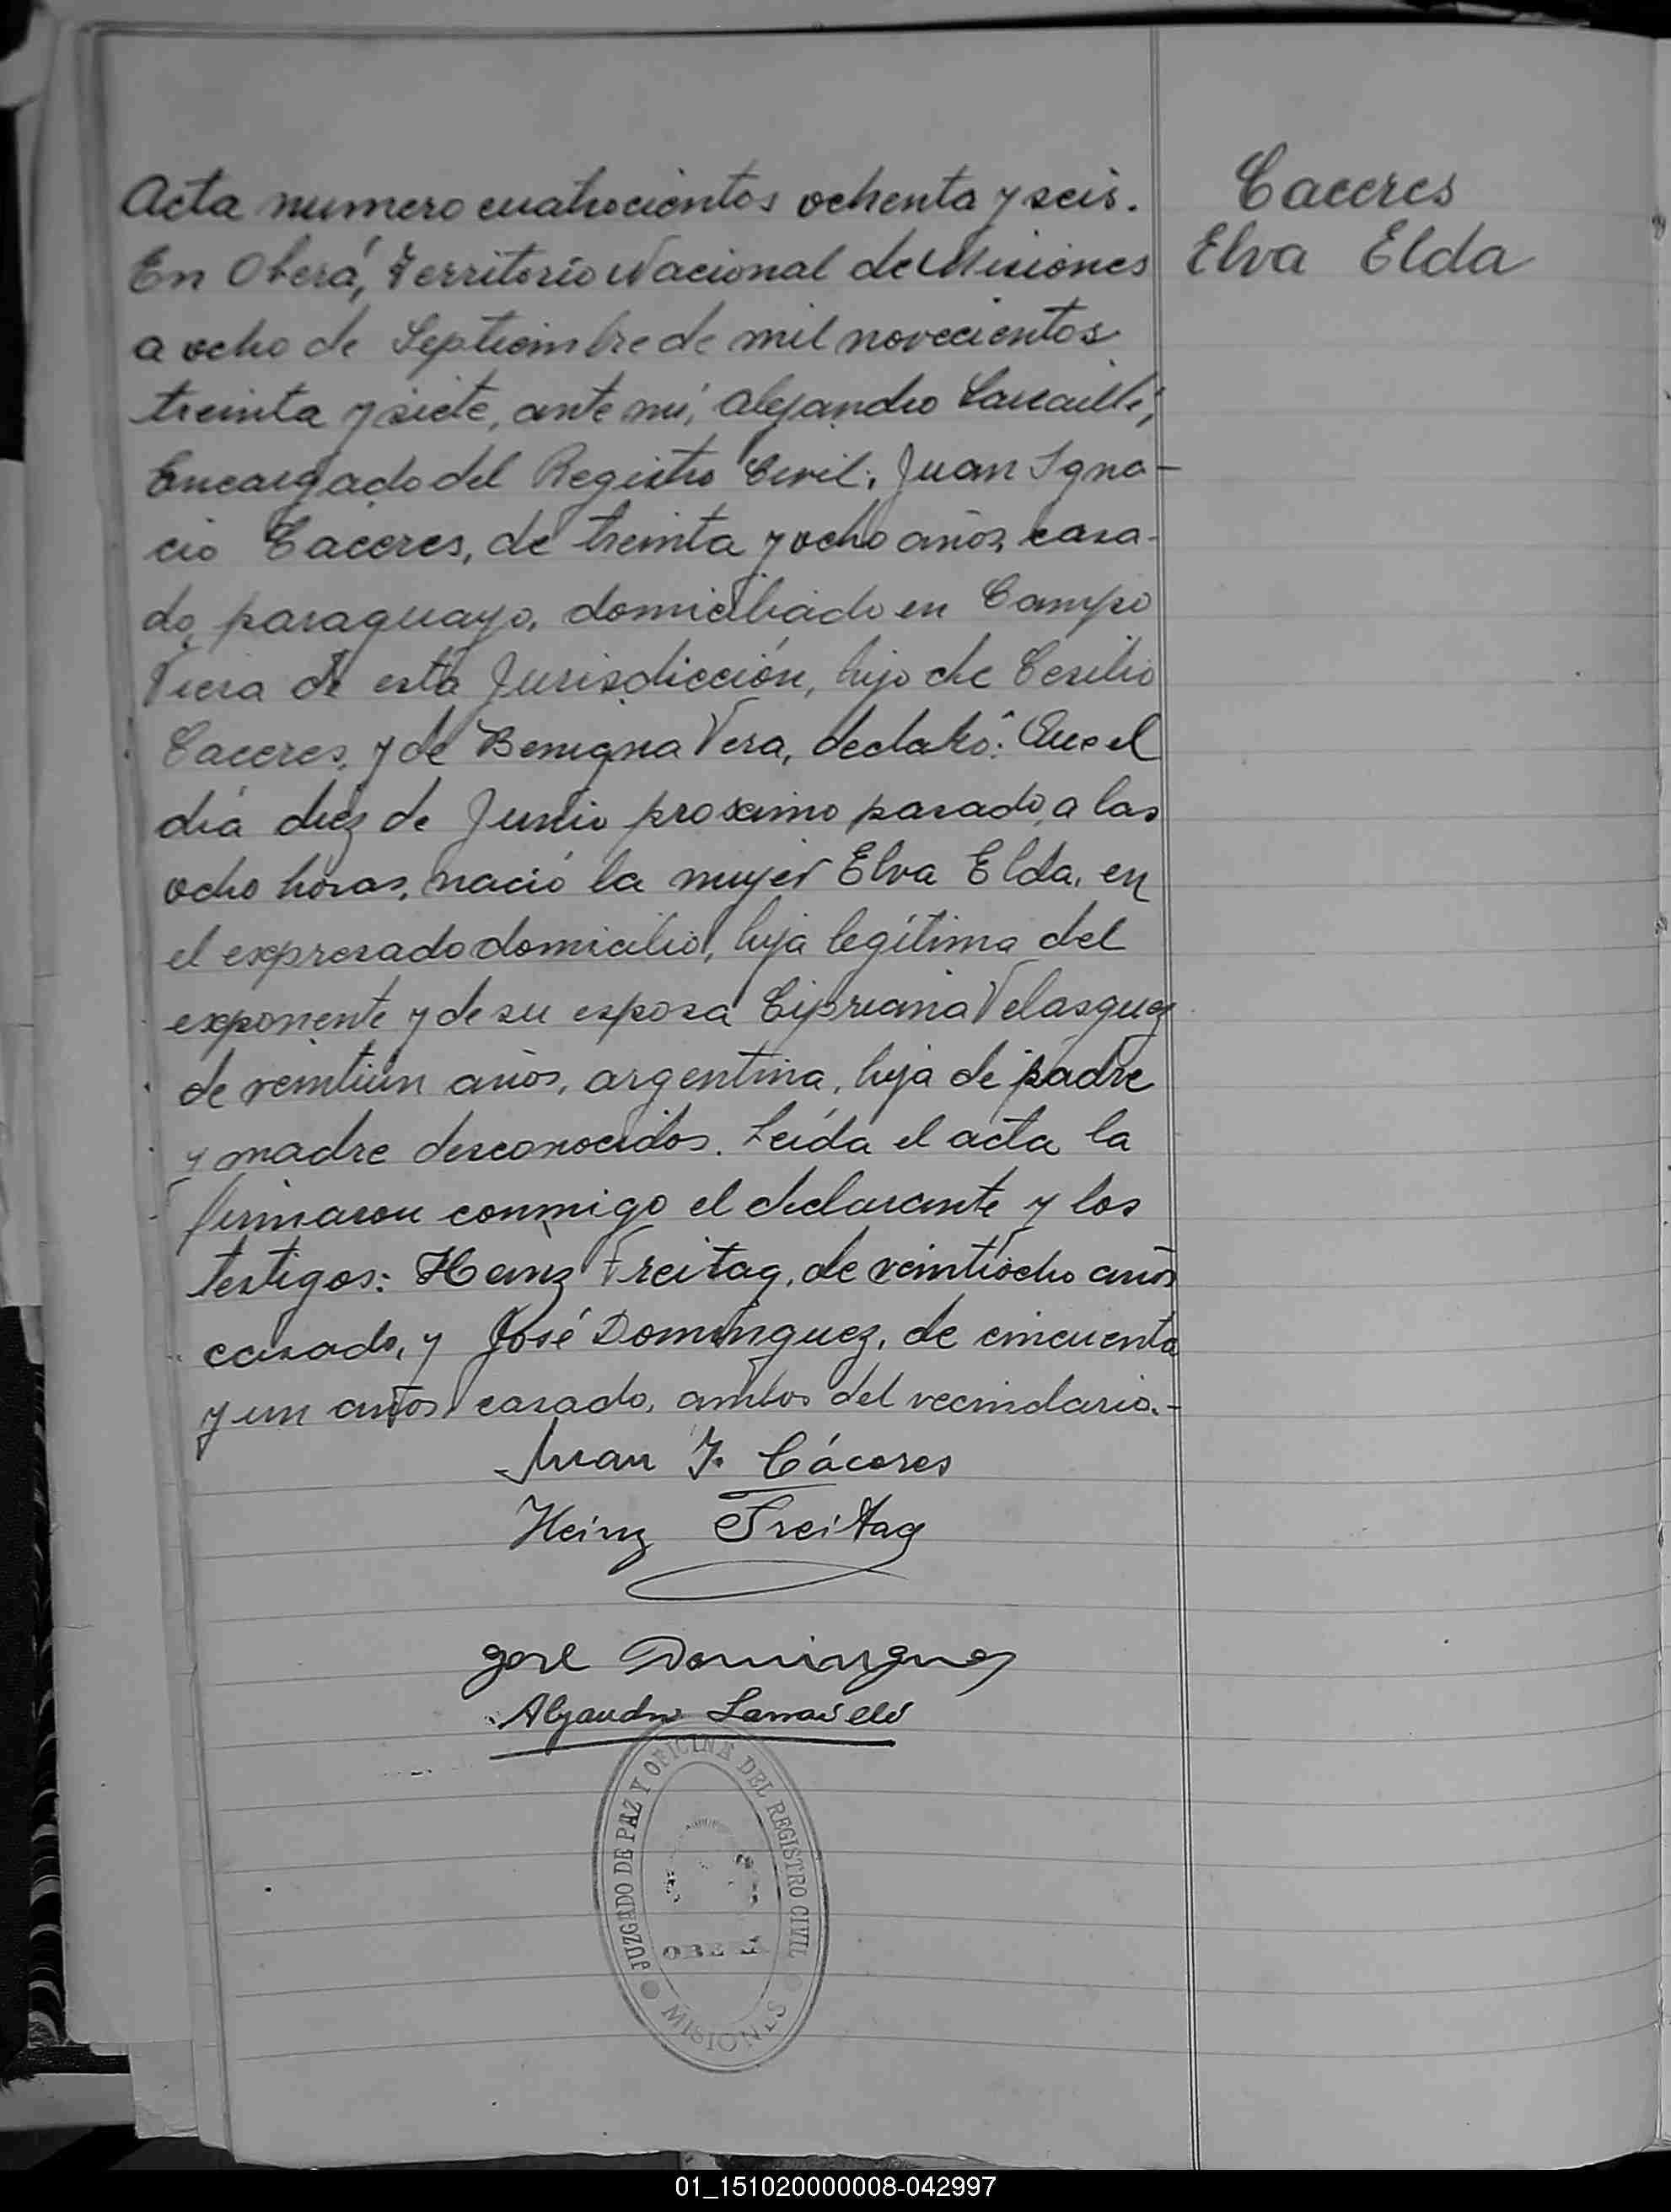 Acta numero cuatrocientos ochenta y seis.
En Oberá, Territorio Nacional de Misiones
a ocho de Septiembre de mil novecientos
treinta y siete, ante mi, Alejandro
Encargado del Registro Civil; Juan Igna-
cio Caceres, de treinta y ocho años, casa-
do, paraguayo, domiciliado en Campo
Viera de esta Jurisdicción, hijo de Cesilio
Caceres, y de Benigna Vera, declaró: Que el
día diez de Junio proximo pasado, a las
ocho horas, nació la mujer Elva Elda, en
el expresado domicilio, hija legítima del
exponente y de su esposa Cipriana Velasquez
de veintiún años, argentina, hija de padre
y madre desconocidos. Leída el acta la
firmaron conmigo el declarante y los
testigos: Heinz Freitag, de veintiocho años
casado, y José Dominguez, de cincuenta
y un años casado, ambos del vecindario.-
Caceres
Elva Elda
Juan I. Cáceres
Heinz Freitag
José Dominguez
Alejandro
JUZGADO DE PAZ Y OFICINA DEL REGISTRO CIVIL
OBERA
MISIONES
01_151020000008-042997